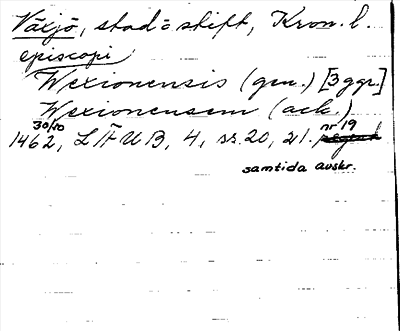 Växjö, stad o stift, Kron. l.
episcopi
Wexionensis (gen.) [3 ggr.]
Wexionensem (ack.)
30/10 nr 19
1462, LÄUB, 4, ss. 20, 21.
samtida avskr.